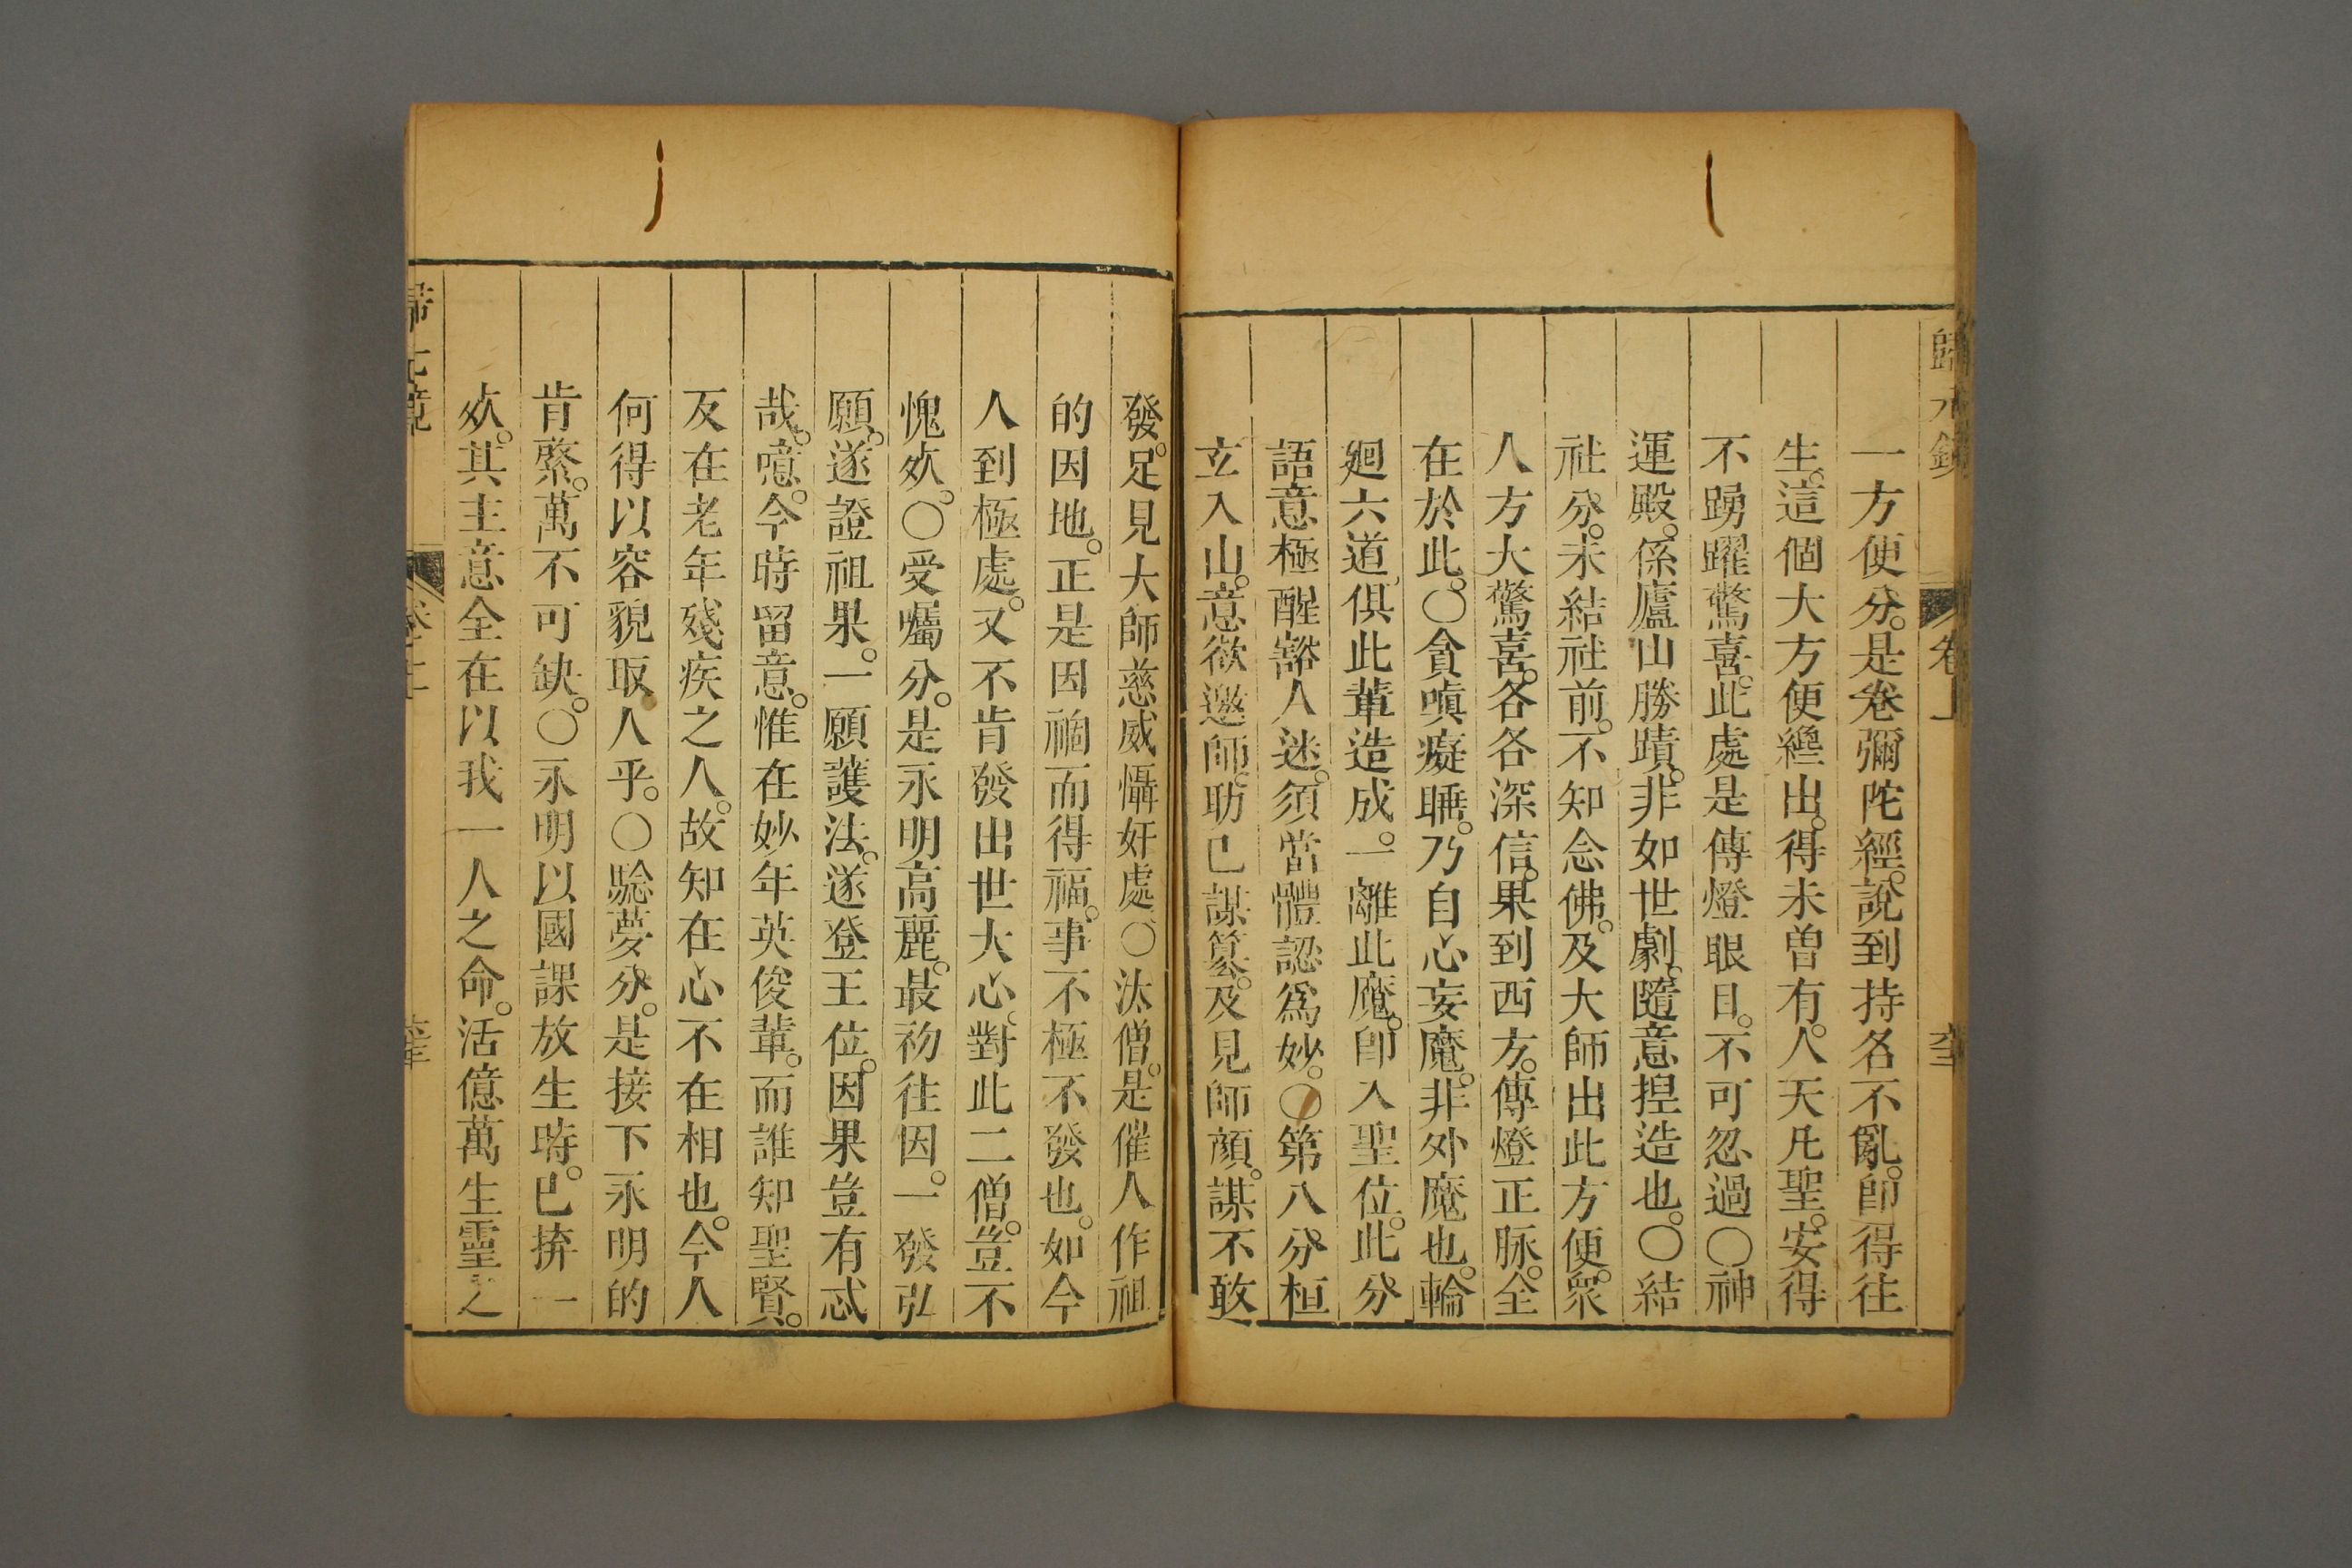 歸元鏡 卷上
一方便分。是卷彌陀經。說到持名不亂。卽得往
生。這個大方便纔出。得未曾有。人天凡聖。安得
不踴躍驚喜。此處是傳燈眼目。不可忽過〇神
運殿。係廬山勝蹟。非如世劇。隨意揑造也。〇結
社分。未結社前。不知念佛。及大師出此方便。衆
人方大驚喜。各各深信。果到西方。傳燈正脉。全
在於此。〇貪嗔癡睡。乃自心妄魔。非外魔也。輪
廻六道、俱此輩造成。一離此魔。卽入聖位。此分
語意極醒豁人迷。須當體認爲妙。〇第八分桓
玄入山。意欲邀師。助己謀篡。及見師顏。謀不敢
發。足見大師慈威懾奸處〇汰僧。是催人作祖
的因地。正是因禍而得福。事不極不發也。如今
人到極處。又不肯發出世大心。對此二僧。豈不
愧欤。〇受囑分。是永明高麗。最初往因。一發弘
願。遂證祖果。一願護法。遂登王位。因果豈有忒
哉。噫。今時留意。惟在妙年英俊輩。而誰知聖賢。
反在老年殘疾之人。故知在心不在相也。今人
何得以容貌取人乎。〇驗夢分。是接下永明的
肯綮。萬不可缺。〇永明以國課放生時。已拚一
欤。其主意全在以我一人之命。活億萬生靈之
歸元鏡 卷上